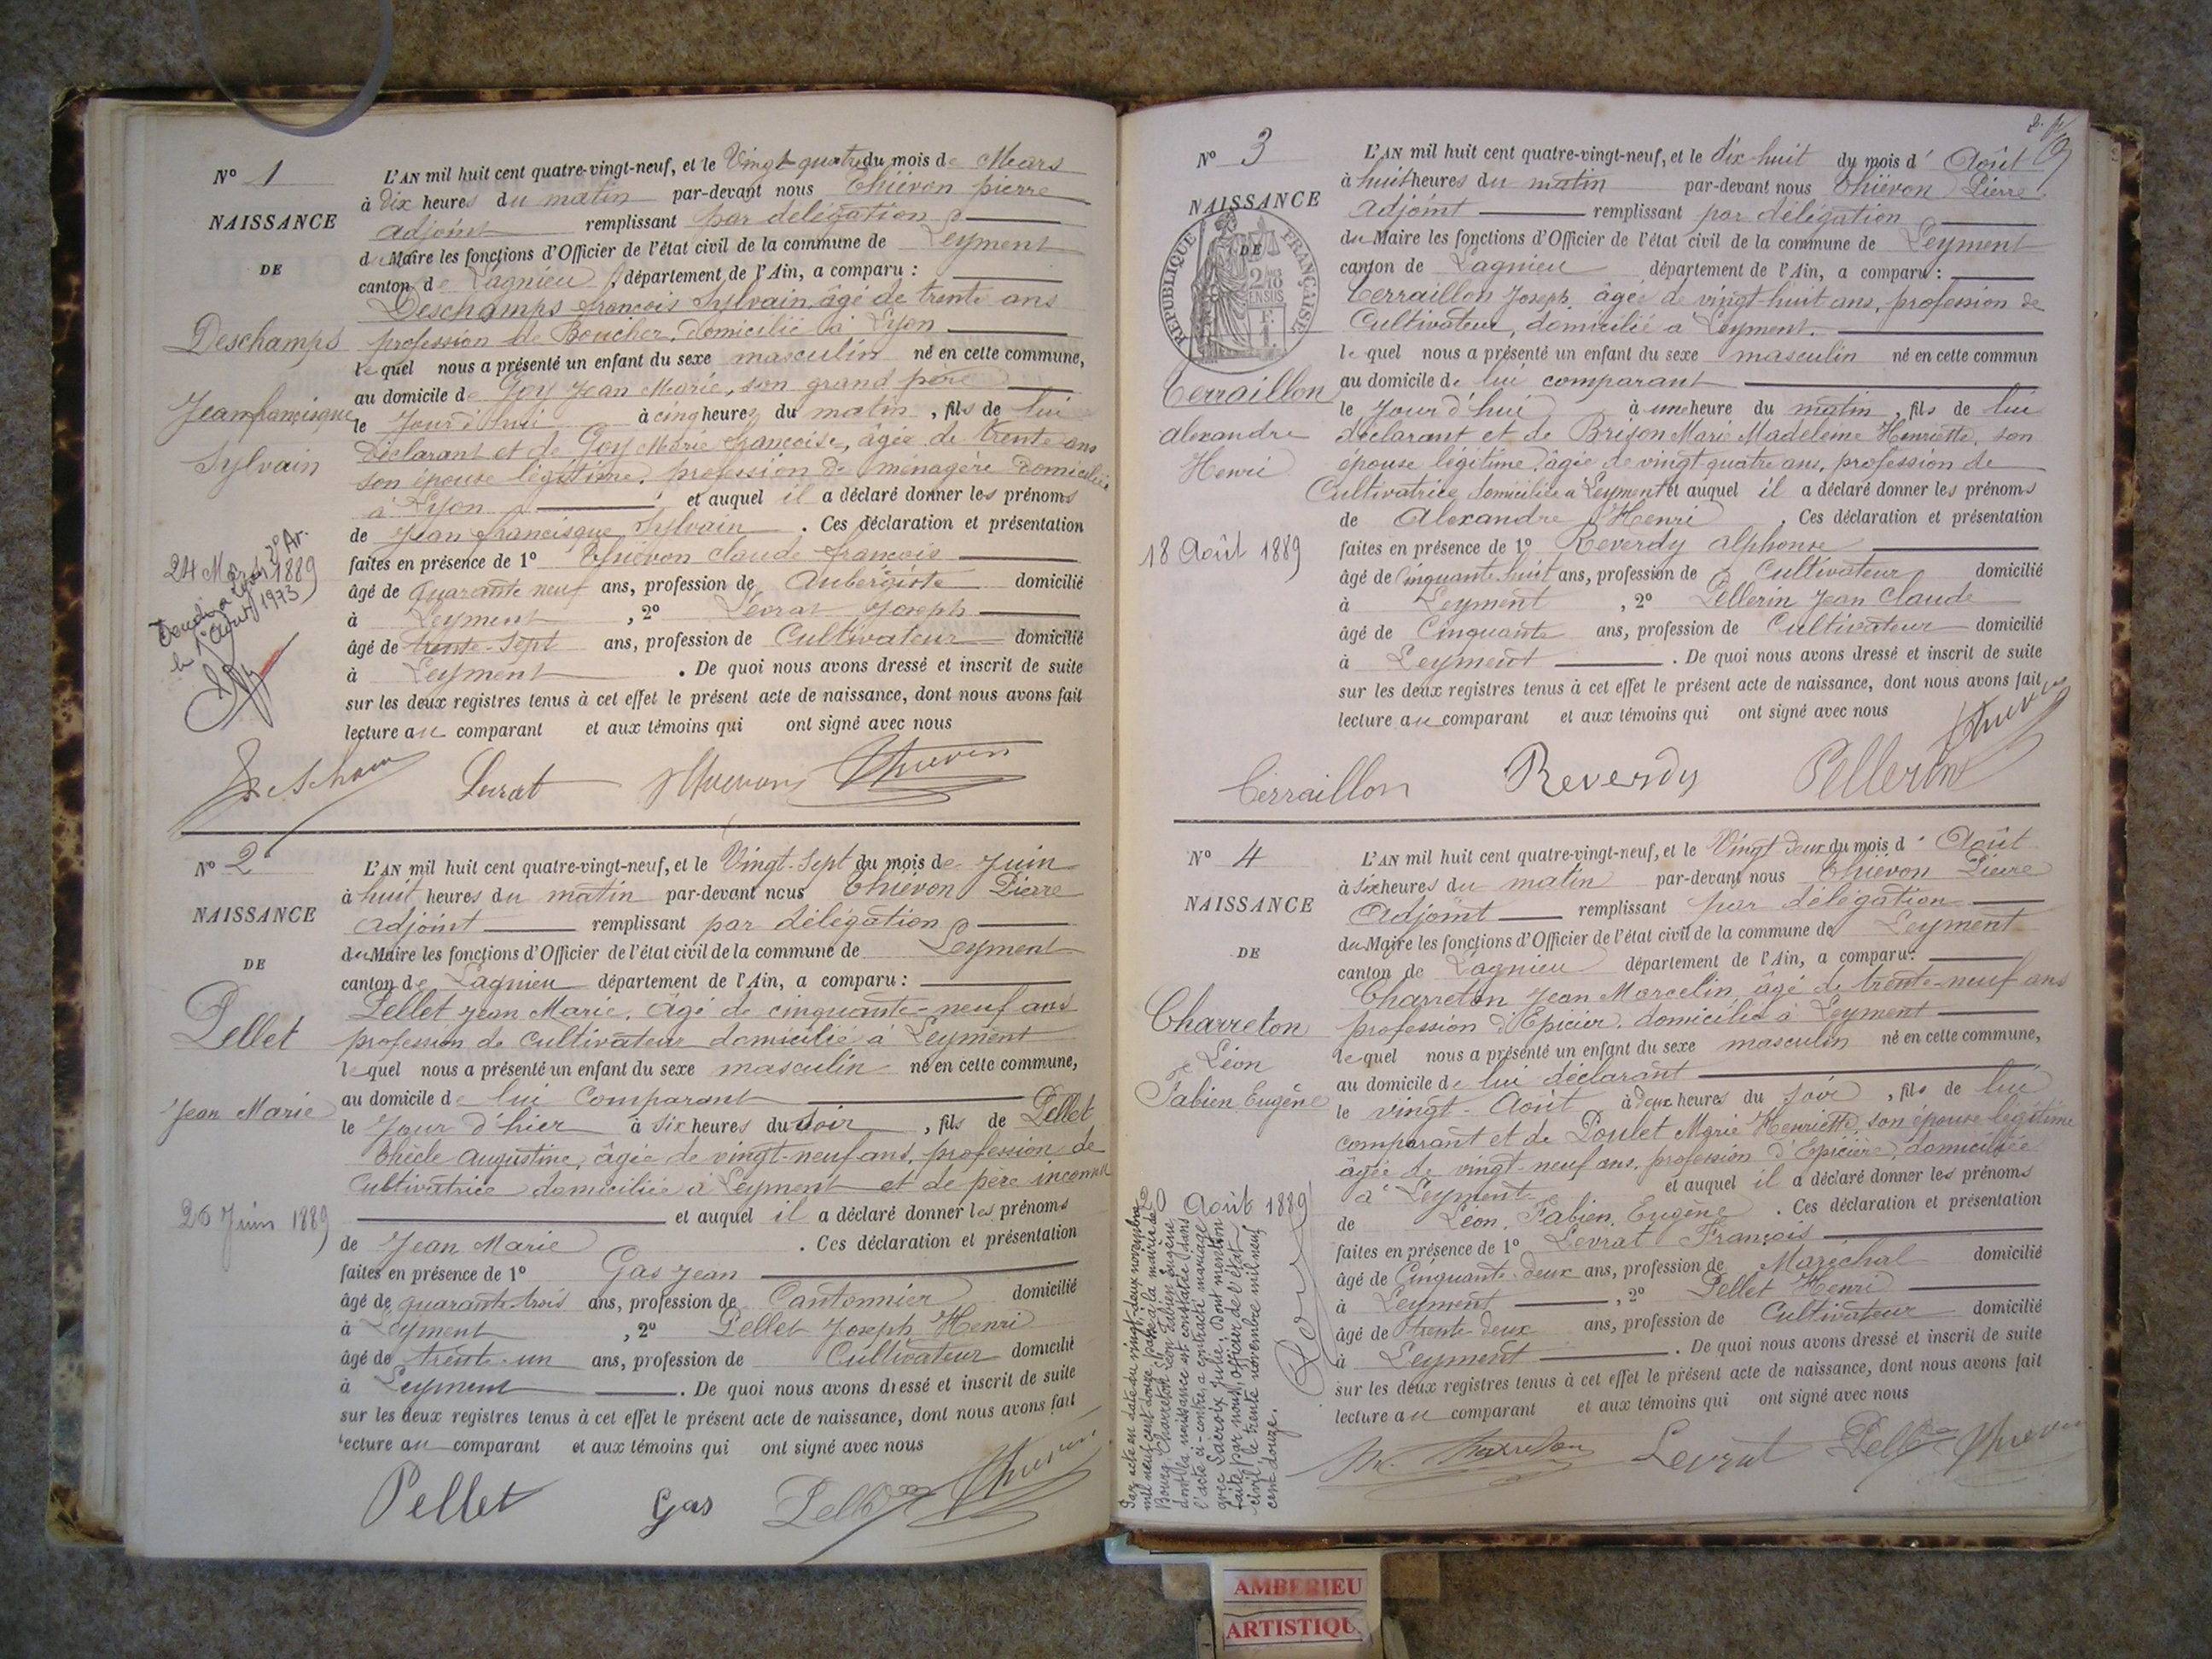 N° 1
NAISSANCE
DE
Deschamps
Jean francisque
Sylvain
24 Mars 1889
L'AN mil huit cent quatre-vingt-neuf, et le Vingt quatre du mois de Mars
à dix heures du matin par-devant nous Thiévon pierre
adjoint remplissant par délégation
du Maire les fonctions d'Officier de l'état civil de la commune de Leyment
canton de Lagnieu, département de l'Ain, a comparu :
Deschamps françois Sylvain âgé de trente ans
profession de Boucher, domicilié à Lyon
lequel nous a présenté un enfant du sexe masculin né en cette commune,
au domicile de Goy Jean Marie, son grand père
le Jour d'hui à cinq heures du matin, fils de lui
Déclarant et de Goy Marie françoise, âgée de trente ans
son épouse légitime, profession de ménagère domiciliée
à Lyon et auquel il a déclaré donner les prénoms
de Jean francisque Sylvain. Ces déclaration et présentation
faites en présence de 1° Thiévon claude françois
âgé de quarante neuf ans, profession de Aubergiste domicilié
à Leyment, 2° Levrat Joseph
âgé de trente-sept ans, profession de Cultivateur domicilié
à Leyment. De quoi nous avons dressé et inscrit de suite
sur les deux registres tenus à cet effet le présent acte de naissance, dont nous avons fait
lecture au comparant et aux témoins qui ont signé avec nous
Levrat Thievon Thievon
N° 2
NAISSANCE
DE
Pellet
Jean Marie
26 Juin 1889
L'AN mil huit cent quatre-vingt-neuf, et le Vingt-Sept du mois de Juin
à huit heures du matin par-devant nous Thiévon Pierre
adjoint remplissant par délégation
du Maire les fonctions d'Officier de l'état civil de la commune de Leyment
canton de Lagnieu département de l'Ain, a comparu :
Pellet Jean Marie, âgé de cinquante-neuf ans
profession de Cultivateur domicilié à Leyment
lequel nous a présenté un enfant du sexe masculin né en cette commune,
au domicile de lui Comparant
le Jour d'hier à six heures du soir, fils de Pellet
Thècle Augustine, âgée de vingt-neuf ans, profession de
Cultivatrice domiciliée à Leyment et de père inconnu
et auquel il a déclaré donner les prénoms
de Jean Marie. Ces déclaration et présentation
faites en présence de 1° Gas Jean
âgé de quarante trois ans, profession de Cantonnier domicilié
à Leyment, 2° Pellet Joseph Henri
âgé de trente-un ans, profession de Cultivateur domicilié
à Leyment. De quoi nous avons dressé et inscrit de suite
sur les deux registres tenus à cet effet le présent acte de naissance, dont nous avons fait
lecture au comparant et aux témoins qui ont signé avec nous
Pellet Gas Pellet Thievon
N° 3
NAISSANCE
DE
RÉPUBLIQUE FRANÇAISE
Terraillon
Alexandre
Henri
18 Août 1889
L'AN mil huit cent quatre-vingt-neuf, et le dix-huit du mois d'Août
à huit heures du matin par-devant nous Thiévon Pierre
adjoint remplissant par délégation
du Maire les fonctions d'Officier de l'état civil de la commune de Leyment
canton de Lagnieu département de l'Ain, a comparu :
Terraillon Joseph, âgé de vingt-huit ans, profession de
Cultivateur, domicilié à Leyment.
lequel nous a présenté un enfant du sexe masculin né en cette commun
au domicile de lui comparant
le Jour d'hui à une heure du matin, fils de lui
déclarant et de Marie Madeleine Henriette, son
épouse légitime, âgée de vingt quatre ans, profession de
Cultivatrice domiciliée à Leyment et auquel il a déclaré donner les prénoms
de Alexandre Henri. Ces déclaration et présentation
faites en présence de 1° Reverdy alphonse
âgé de Cinquante huit ans, profession de Cultivateur domicilié
à Leyment, 2° Pellerin Jean Claude
âgé de Cinquante ans, profession de Cultivateur domicilié
à Leyment. De quoi nous avons dressé et inscrit de suite
sur les deux registres tenus à cet effet le présent acte de naissance, dont nous avons fait
lecture au comparant et aux témoins qui ont signé avec nous
Terraillon Reverdy Pellerin Thievon
N° 4
NAISSANCE
DE
Charreton
Léon
Fabien Eugène
20 Août 1889
L'AN mil huit cent quatre-vingt-neuf, et le Vingt deux du mois d'Août
à six heures du matin par-devant nous Thiévon Pierre
Adjoint remplissant par délégation
du Maire les fonctions d'Officier de l'état civil de la commune de Leyment
canton de Lagnieu département de l'Ain, a comparu :
Charreton Jean Marcelin âgé de trente-neuf ans
profession d'Epicier, domicilié à Leyment
lequel nous a présenté un enfant du sexe masculin né en cette commune,
au domicile de lui déclarant
le vingt Août à deux heures du soir, fils de lui
comparant et de Poulet Marie Henriette, son épouse légitime
âgée de vingt-neuf ans, profession d'Epicière, domiciliée
à Leyment et auquel il a déclaré donner les prénoms
de Léon, Fabien, Eugène. Ces déclaration et présentation
faites en présence de 1° Levrat François
âgé de Cinquante-deux ans, profession de Maréchal domicilié
à Leyment, 2° Pellet Henri
âgé de trente deux ans, profession de Cultivateur domicilié
à Leyment. De quoi nous avons dressé et inscrit de suite
sur les deux registres tenus à cet effet le présent acte de naissance, dont nous avons fait
lecture au comparant et aux témoins qui ont signé avec nous
Charreton Levrat Pellet Thievon
Par acte en date du vingt-deux novembre
mil neuf cent douze, passé à la mairie de
Bourg, Charreton Léon Fabien Eugène
dont la naissance est constatée dans
l'acte ci-contre, a contracté mariage
avec Lacroix Julie. Dont mention
faite par nous, officier de l'état
civil, le trente novembre mil neuf
cent douze.
AMBERIEU
ARTISTIQU